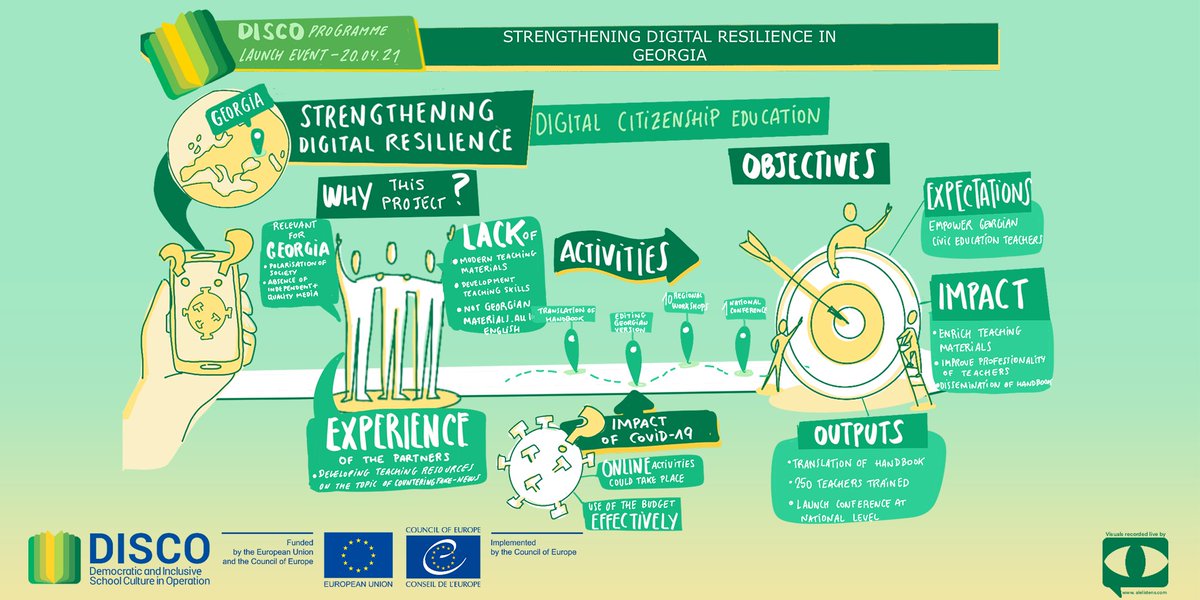 DISCO PROGRAMME
LAUNCH EVENT - 20.04.21
STRENGTHENING DIGITAL RESILIENCE IN
GEORGIA
GEORGIA
STRENGTHENING
DIGITAL RESILIENCE
DIGITAL CITIZENSHIP EDUCATION
WHY THIS
PROJECT?
RELEVANT
FOR
GEORGIA
• POLARISATION OF
SOCIETY
• ABSENCE OF
INDEPENDENT +
QUALITY MEDIA
LACK OF
• MODERN TEACHING
MATERIALS
• DEVELOPMENT
TEACHING SKILLS
• NOT GEORGIAN
MATERIALS. ALL I
ENGLISH
EXPERIENCE
OF THE PARTNERS
• DEVELOPING TEACHING RESOURCES
ON THE TOPIC OF COUNTERING FAKE-NEWS
ACTIVITIES
TRANSLATION OF
HANDBOOK
EDITING
GEORGIAN
VERSION
10 REGIONAL
WORKSHOPS
1 NATIONAL
CONFERENCE
IMPACT
OF COVID-19
ONLINE ACTIVITIES
COULD TAKE PLACE
USE OF THE BUDGET
EFFECTIVELY
OBJECTIVES
EXPECTATIONS
EMPOWER GEORGIAN
CIVIC EDUCATION TEACHERS
IMPACT
• ENRICH TEACHING
MATERIALS
• IMPROVE PROFESSIONALITY
OF TEACHERS
• DISSEMINATION OF HANDBOOK
OUTPUTS
• TRANSLATION OF HANDBOOK
• 250 TEACHERS TRAINED
• LAUNCH CONFERENCE AT
NATIONAL LEVEL
DISCO
Democratic and Inclusive
School Culture in Operation
Funded
by the European Union
and the Council of Europe
EUROPEAN UNION
COUNCIL OF EUROPE
CONSEIL DE L'EUROPE
Implemented
by the Council of Europe
Visuals recorded live by
www.alelistens.com